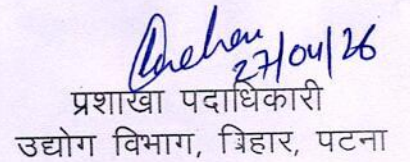 27/04/26
प्रशाखा पदाधिकारी
उद्योग विभाग, बिहार, पटना